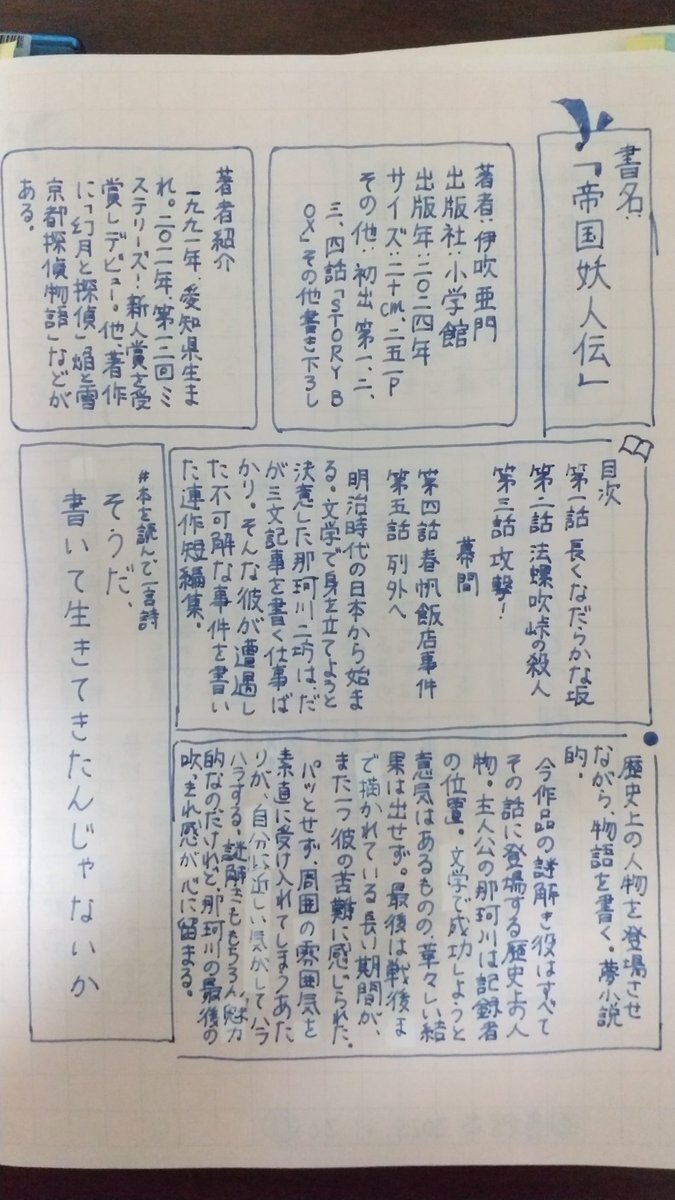 書名:
「帝国妖人伝」
著者:伊吹亜門
出版社:小学館
出版年:二〇二四年
サイズ:二十cm、二五一P
その他:初出 第一、二、
三、四話「STORY B
OX」その他書き下ろし
著者紹介
一九九一年、愛知県生ま
れ。二〇一五年、第一二回ミ
ステリーズ!新人賞を受
賞しデビュー。他、著作
に「幻月と探偵」「焔と雪
京都探偵物語」などが
ある。
目次
第一話 長くなだらかな坂
第二話 法螺吹峠の殺人
第三話 攻撃!
幕間
第四話 春帆飯店事件
第五話 列外へ
明治時代の日本から始ま
る。文学で身を立てようと
決意した那珂川二坊は、だ
が三文記事を書く仕事ば
かり。そんな彼が遭遇し
た不可解な事件を書い
た連作短編集。
歴史上の人物を登場させ
ながら、物語を書く。夢小説
的。
今作品の謎解き役はすべて
その話に登場する歴史上の人
物。主人公の那珂川は記録者
の位置。文学で成功しようと
意気はあるものの、華々しい結
果は出せず。最後は戦後ま
で描かれている長い期間が、
また一つ彼の苦難に感じられた。
パッとせず、周囲の雰囲気を
素直に受け入れてしまうあた
りが、自分に近しい気がして、ハ
ラハラする。謎解きももちろん魅力
的なのだけれど、那珂川の最後の
吹っきれ感が心に留まる。
#本を読んで一言詩
そうだ、
書いて生きてきたんじゃないか